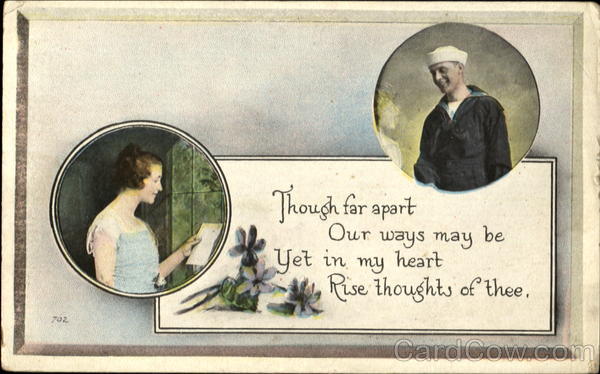 Though far apart
Our ways may be
Yet in my heart
Rise thoughts of thee.
702
CardCow.com